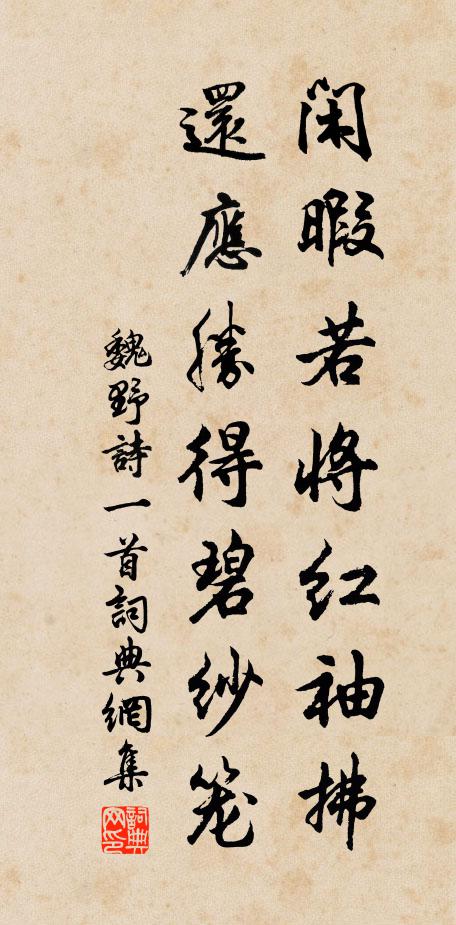 閑暇若将紅袖拂
還應勝得碧紗笼
魏野詩一首詞典網集
詞典網印